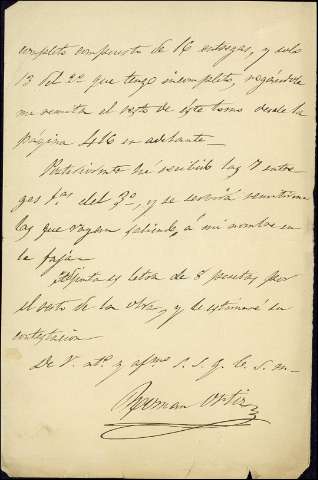 completo compuesto de 16 entregas, y solo
13 del 2º que tengo incompleto, rogándole
me remita el resto de este tomo desde la
página 416 en adelante.
he recibido las 7 entre-
gas del 3º, y se servirá remitirme
las que vayan saliendo, á mi nombre en
la faja.
Adjunta es letra de 8 pesetas por
el resto de la obra, y se estimará su
contestacion
De V. atº y afmo S. S. q. b. s. m.
German Ortiz